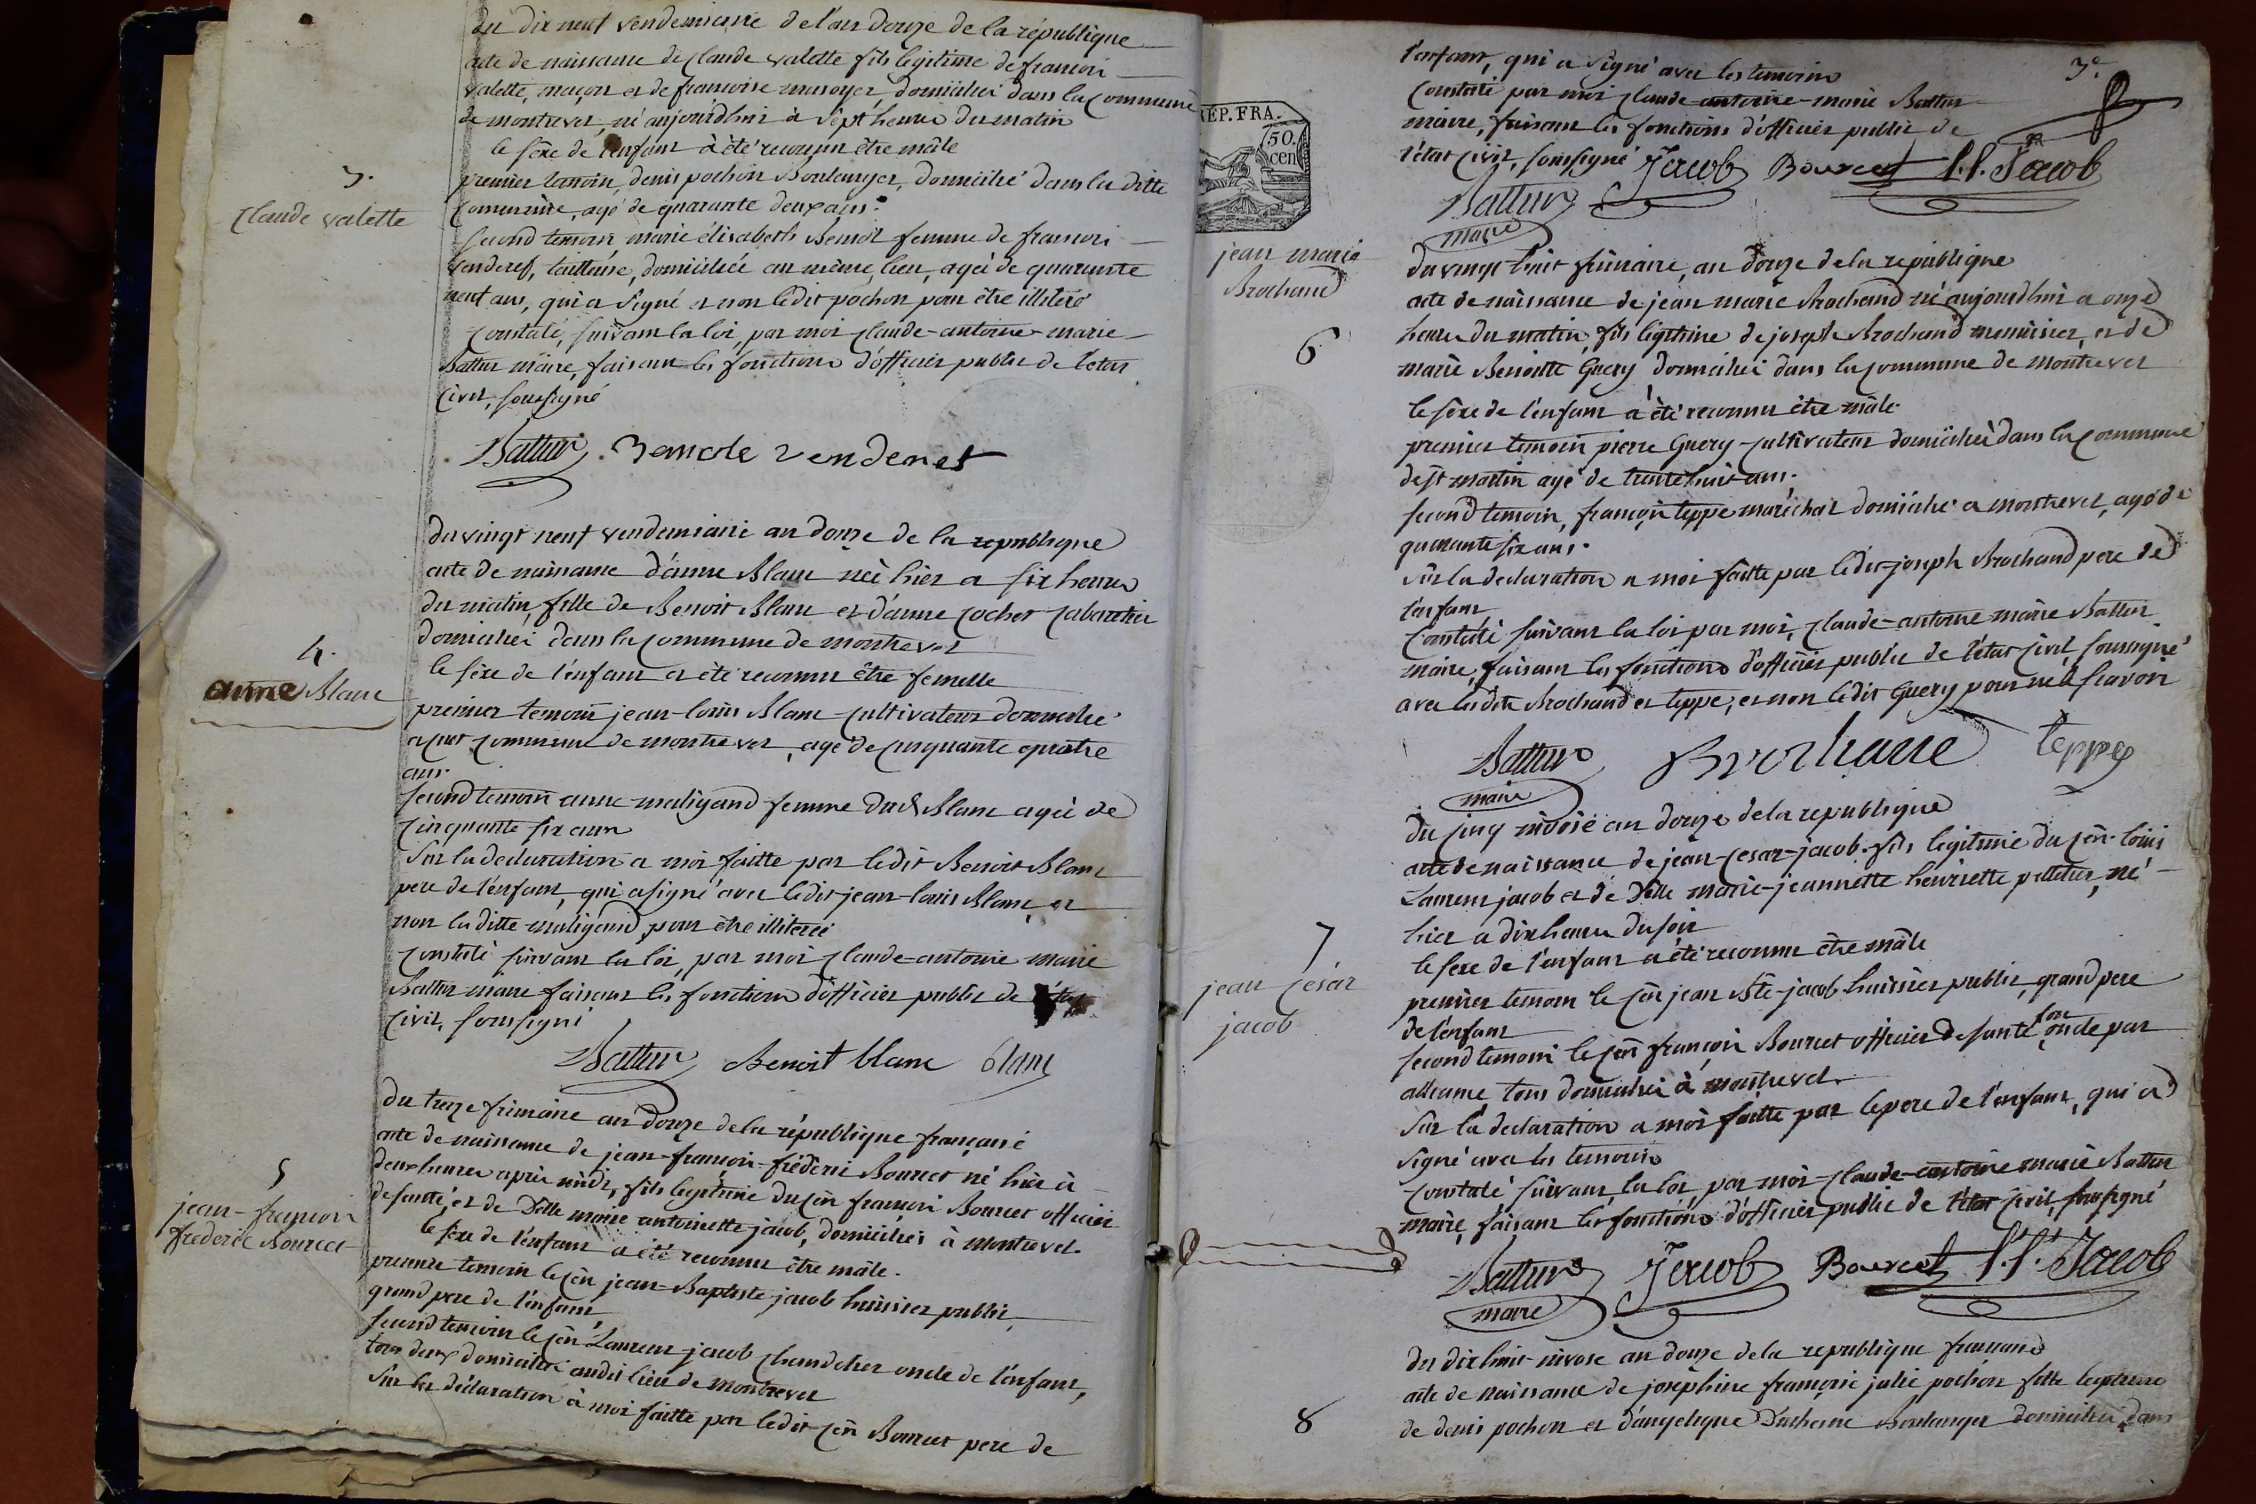 du dix neuf vendemiaire de l'an douze de la république
acte de naissance de claude valette fils legitime de francois
valette, maçon et de francoise musoyer domiciliés dans la commune
de montrevel, né aujourd'hui à sept heures du matin
le sexe de l'enfant à été reconnu être mâle
3.
claude valette
premier temoin, denis pochon Boulanger, domicilié dans la ditte
commune, agé de quarante deux ans.
second temoin marie élisabeth Benoit femme de francois
venderet, tailleuse, domiciliée au même lieu, agée de quarante
neuf ans, qui a signé et non ledit pochon pour être illiteré
constaté, suivant la loi, par moi claude-antoine-marie
Battur maire, faisant les fonctions d'officier public de l'etat
civil, soussigné
Battur . venderet
du vingt neuf vendemiaire an douze de la republique
acte de naissance d'anne Blanc née hier a six heures
du matin, fille de Benoit Blanc et d'anne cochet cabaretier
domiciliés dans la commune de montrevel
le sexe de l'enfant a été reconnu être femelle
4.
anne Blanc
premier temoin jean-louis Blanc cultivateur domicilié
commune de montrevel, agé de cinquante quatre
ans.
second temoin anne maligand femme dud. Blanc agée de
cinquante six ans
Sur la declaration a moi faitte par ledit Benoit Blanc
pere de l'enfant, qui a signé avec ledit jean-louis Blanc, et
non la ditte maligand pour être illiterée
constaté suivant la loi, par moi claude-antoine marie
Battur maire faisant les fonctions d'officier public de l'état
civil, soussigné
Battur Benoit blanc blanc
du treze frimaire an douze de la république française
acte de naissance de jean-francois-fréderic Bourcet né hier à
deux heures après midi, fils legitime du cen francois Bourcet officier
de santé, et de Delle marie antoinette jacob, domiciliés à montrevel.
le sexe de l'enfant a été reconnu être mâle.
5
jean-francois
frederic Bourcet
premier temoin le cen jean-Baptiste jacob huissier public,
grand pere de l'enfant
second temoin le cen Laurent jacob chandelier oncle de l'enfant,
tous deux domiciliés audit lieu de montrevel
Sur la déclaration à moi faitte par ledit cen Bourcet pere de
3e
l'enfant, qui a signé avec les temoins
Constaté par moi claude-antoine-marie Battur
maire, faisant les fonctions d'officier public de
l'état civil, soussigné Jacob Bourcet l.l. Jacob
Battur
maire
REP. FRA.
50.
cen
jean marie
Brochand
6
du vingt huit frimaire, an douze de la republique
acte de naissance de jean marie Brochand né aujourd'hui a onze
heures du matin, fils legitime de joseph Brochand menuisier, et de
marie Benoitte Guery domiciliés dans la commune de montrevel
le sexe de l'enfant a été reconnu être mâle.
premier temoin pierre Guery cultivateur domicilié dans la commune
de st martin agé de trente huit ans.
second temoin, françois teppe maréchal domicilié a montrevel, agé de
quarante six ans.
sur la declaration a moi faitte par ledit joseph Brochand pere de
l'enfant
Constaté suivant la loi par moi, claude-antoine marie Battur
maire, faisant les fonctions d'officier public de l'état civil, soussigné
avec lesdits Brochand et teppe, et non ledit Guery pour ne le scavoir
Battur Brochand teppe
maire
du cinq nivose an douze de la republique
acte de naissance de jean-cesar-jacob. fils legitime du cen. louis
Laurent jacob et de Delle marie-jeannette henriette pelletier, né
hier a dix heures du soir
le sexe de l'enfant a été reconnu être mâle
7
jean césar
jacob
premier temoin le cen jean Bte-jacob huissier public, grand pere
de l'enfant
second temoin le cen françois Bourcet officier de santé son oncle par
alliance, tous domiciliés à montrevel.
Sur la declaration a moi faitte par le pere de l'enfant, qui a
signé avec les temoins
constaté suivant la loi, par moi claude-antoine marie Battur
maire, faisant les fonctions d'officier public de l'état civil, soussigné
Battur Jacob Bourcet l.l. Jacob
maire
du dix huit nivose an douze de la republique francaise
8
acte de naissance de joséphine françoise julie pochon fille legitime
de denis pochon et d'angelique Duchesne Boulanger domiciliés dans